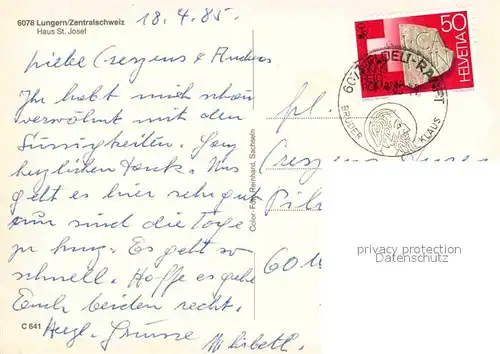 6078 Lungern/Zentralschweiz
Haus St. Josef
18.4.85.
Liebe Creszens & Andreas
Ihr habt mich schön
verwöhnt mit den
Süssigkeiten. Ganz
herzlichen Dank. Uns
geht es hier sehr gut
nur sind die Tage
zu kurz. Es geht so
schnell. Hoffe es gehe
Euch beiden recht.
Herzl. Grüsse
C 641
Color-Foto Reinhard, Sachseln
50
HELVETIA
6073 FLÜELI-RANFT
BRUDER KLAUS
privacy protection
Datenschutz